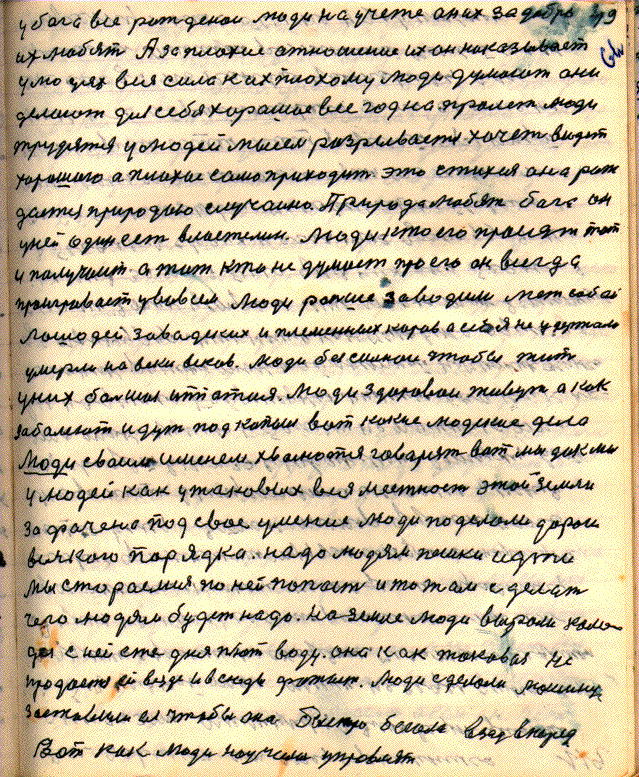 у бога все рождены люди на учете он их за добро
их любят А за плохие отношение их он наказывает
у людях вся сила к их плохому люди думают они
делают для себя хорошое все год на пролет люди
трудятся у людей мысел разрывается хочет видет
хорошого а плохое само приходит это стихея она рож
дается природою случаина Природа любят бога он
у ней один ест властелин. Люди кто его просят тот
и палучаит а тот кто не думает про его он всегда
проигравает у во всем Люди ранше заводили меж собой
лошодей заводских и племенных коров а себя не удержали
умерли на веки веков. Люди бессилнои чтобы жить
у них болшая
Люди здоровои живут а как
заболеют идут под
вот какие людские дела
Люди своим именем хвалются говарят вот мы дак мы
у людей как у таковых вся местност этой земли
захвачена под свое умение люди поделали дороги
всякого порядка. надо людям пешки идти
мы стораемся по ней попаст и то там сделат
чего людям будет надо. На земле люди вырыли коло
дез с ней
дня пют воду. она как таковая не
продается ей везде и всюды хватит. Люди сделали машину
заставили ее чтобы она быстро бегала взад вперед
Вот как люди научили управлят